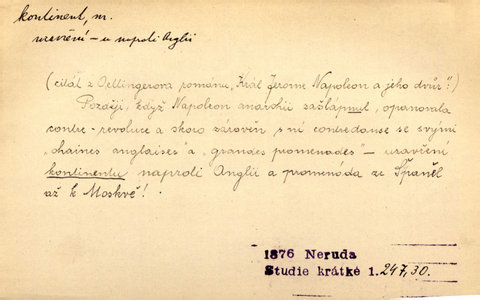 kontinent, m.
uzavření – u naproti Anglii
(citát z Oettingerova románu „Král Jerome Napoleon a jeho dvůr“:)
Později, když Napoleon anarchii zašlápnut, opanovala
contre-revoluce a skoro zároveň s ní contredanse se svými
„chaines anglaises“ a „grandes promenades“ – uzavření
kontinentu naproti Anglii a promenáda ze Španěl
až k Moskvě!
1876 Neruda
Studie krátké 1. 247,30.